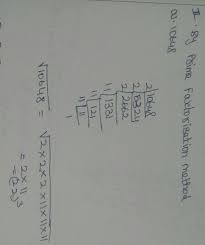 II. By Prime Factorisation method
a). 10648
2|10648
2|5324
2|2662
11|1331
11|121
11|11
1
√10648 = √2×2×2×11×11×11
= 2×11
= (22)3